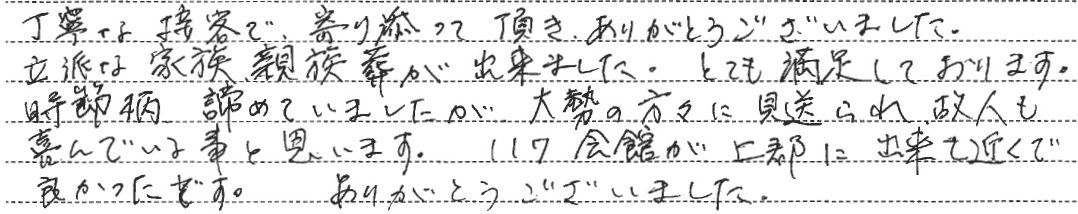 丁寧な接客で、寄り添って頂き、ありがとうございました。
立派な家族、親族葬が出来ました。とても満足しております。
時節柄、諦めていましたが、大勢の方々に見送られ、故人も
喜んでいる事と思います。 117会館が上郡に出来て近くて
良かったです。 ありがとうございました。